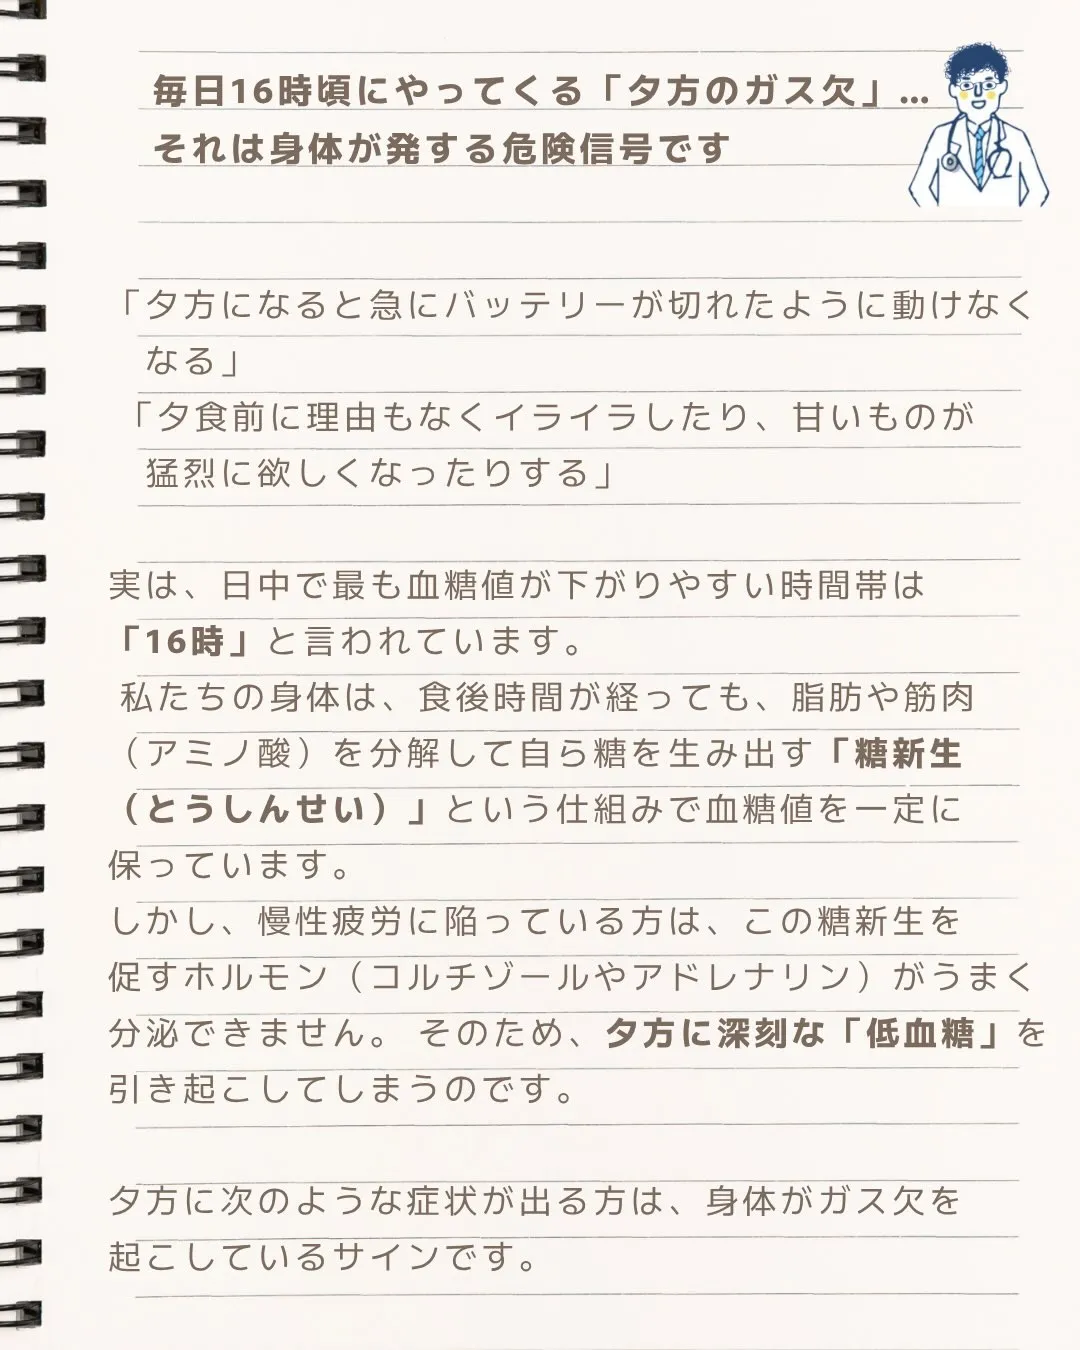 毎日16時頃にやってくる「夕方のガス欠」…
それは身体が発する危険信号です
「夕方になると急にバッテリーが切れたように動けなく
なる」
「夕食前に理由もなくイライラしたり、甘いものが
猛烈に欲しくなったりする」
実は、日中で最も血糖値が下がりやすい時間帯は
「16時」と言われています。
私たちの身体は、食後時間が経っても、脂肪や筋肉
（アミノ酸）を分解して自ら糖を生み出す「糖新生
（とうしんせい）」という仕組みで血糖値を一定に
保っています。
しかし、慢性疲労に陥っている方は、この糖新生を
促すホルモン（コルチゾールやアドレナリン）がうまく
分泌できません。 そのため、夕方に深刻な「低血糖」を
引き起こしてしまうのです。
夕方に次のような症状が出る方は、身体がガス欠を
起こしているサインです。